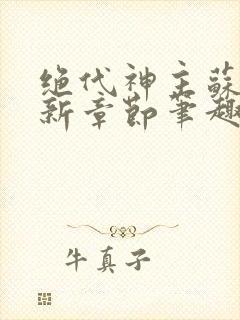 绝代神主蘇
新章節筆趣
牛真子